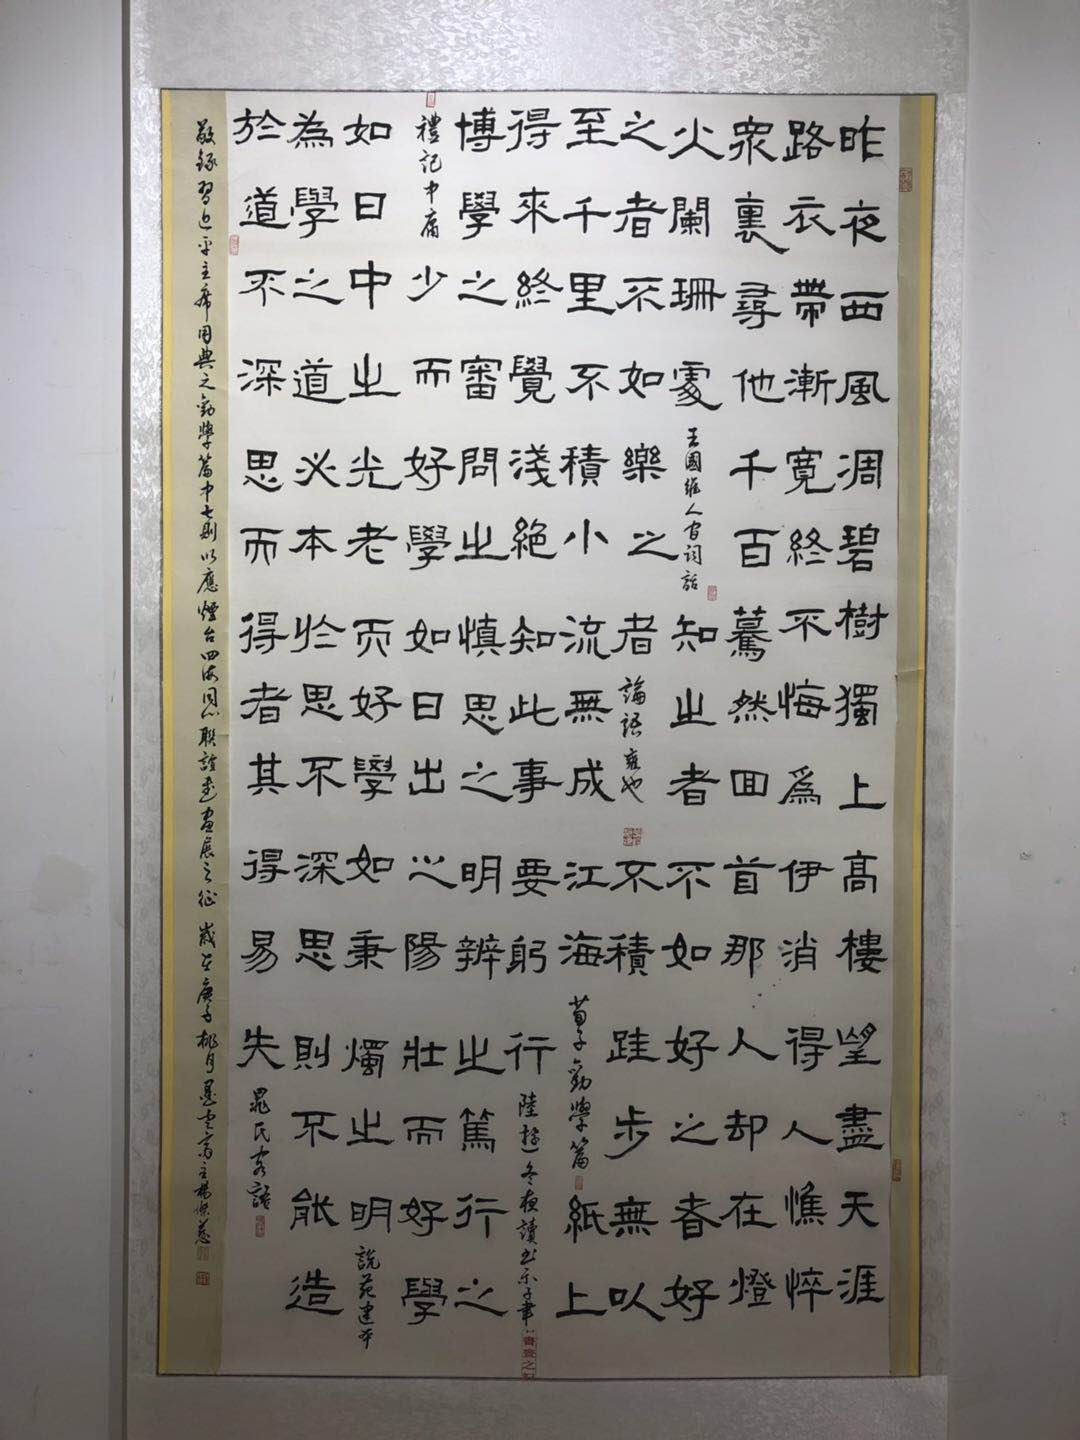 昨夜西風凋碧樹獨上高樓望盡天涯
路衣帶漸寬終不悔為伊消得人憔悴
眾裏尋他千百驀然回首那人却在燈
火闌珊處 王國維人間詞話 知之者不如好之者好
之者不如樂之者 論語雍也 不積跬步無以
至千里不積小流無成江海 荀子勸學篇 紙上
得來終覺淺絕知此事要躬行 陸游冬夜讀書示子聿
博學之審問之慎思之明辨之篤行之
禮記中庸 少而好學如日出之陽壯而好學
如日中之光老而好學如秉燭之明 說苑建本
為學之道必本於思不深思則不能造
於道不深思而得者其得易失 晁氏客語
敬錄習近平主席用典之勸學篇中七則以應煙台四海同心聯誼書畫展之征 歲在庚子桃月墨雲齋主楊